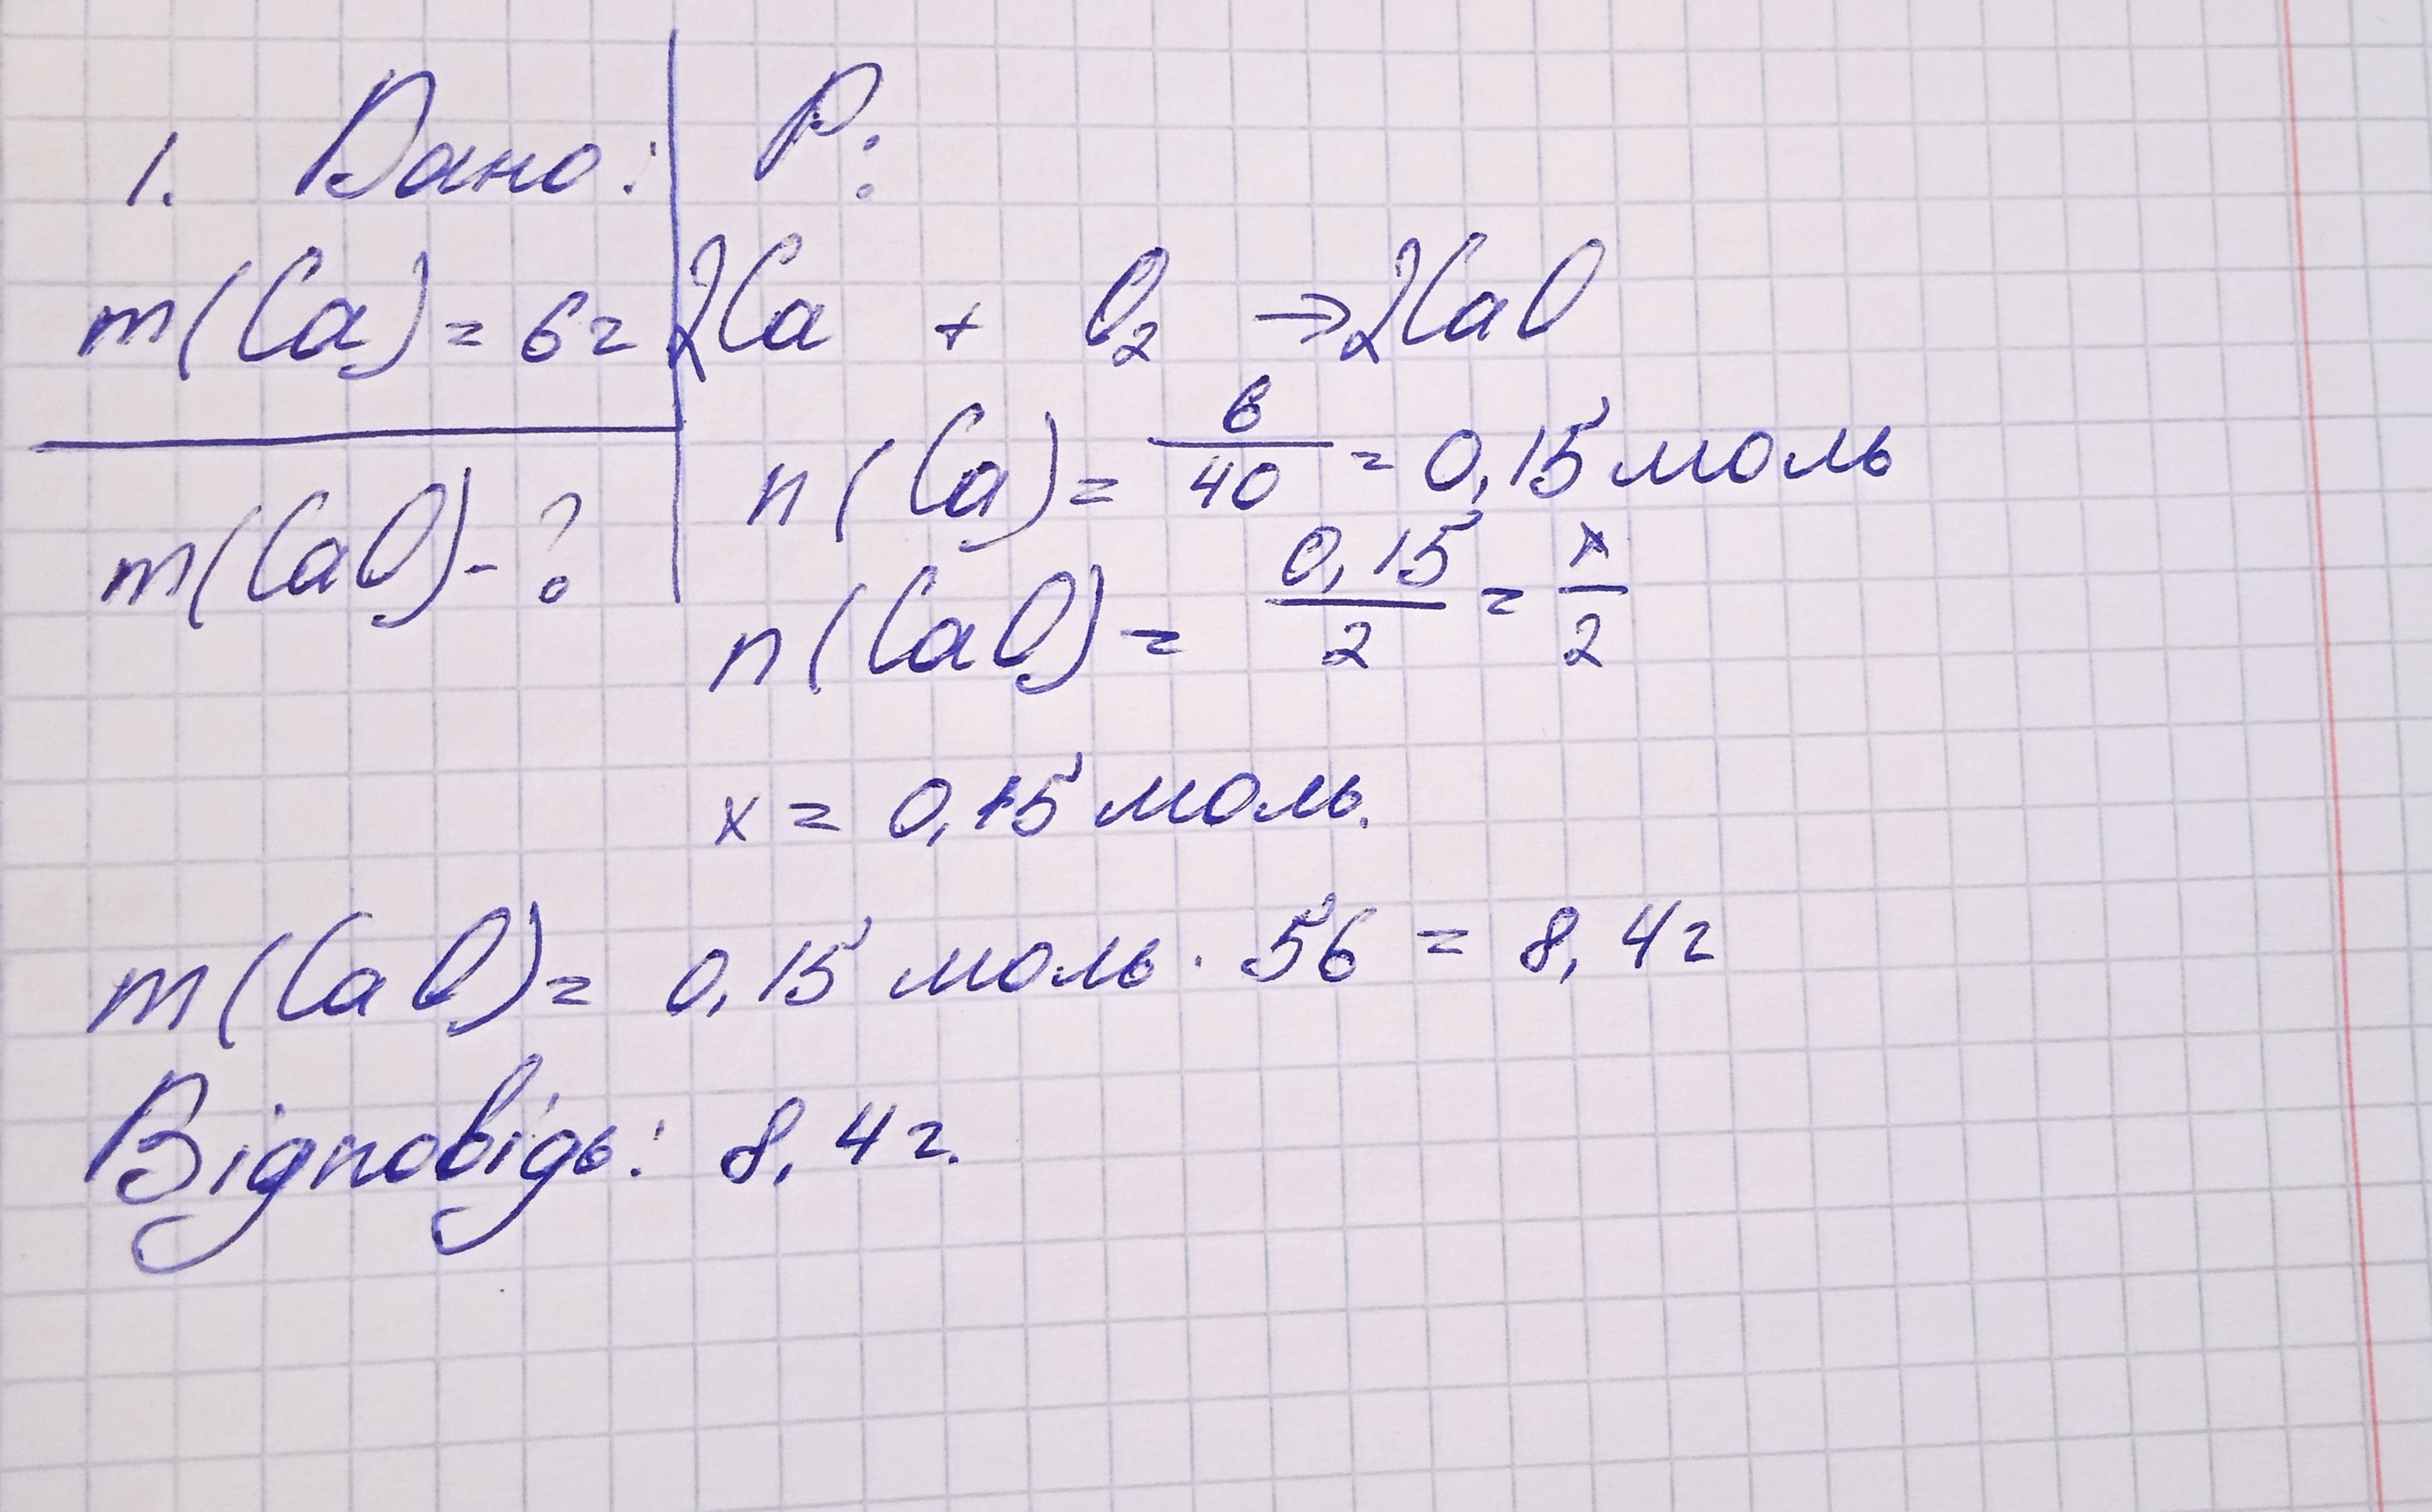 1. Дано: Р:
m(Ca) = 6г 2Ca + O₂ → 2CaO
n(Ca) = 6/40 = 0,15 моль
m(CaO) - ?
n(CaO) = 0,15/2 = x/2
x = 0,15 моль.
m(CaO) = 0,15 моль · 56 = 8,4г
Відповідь: 8,4г.